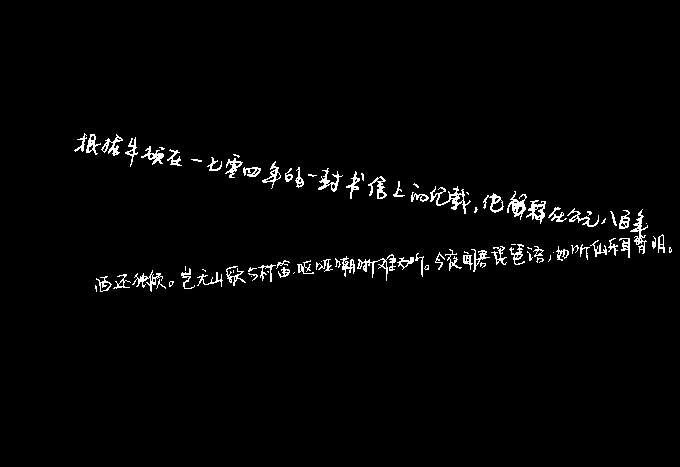 根据牛顿在一七零四年的一封书信上的记载,他解释在公元八百年
酒还独倾。岂无山歌与村笛,呕哑嘲哳难为听。今夜闻君琵琶语,如听仙乐耳暂明。